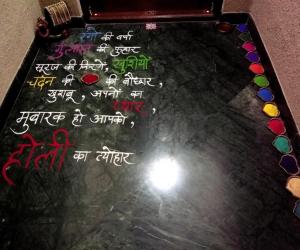 रंगों की वर्षा
गुलाल की फुहार
सूरज की किरणें, खुशियों
चंदन की की बौछार,
खुशबू, अपनों का
प्यार,
मुबारक हो आपको,
होली का त्योहार